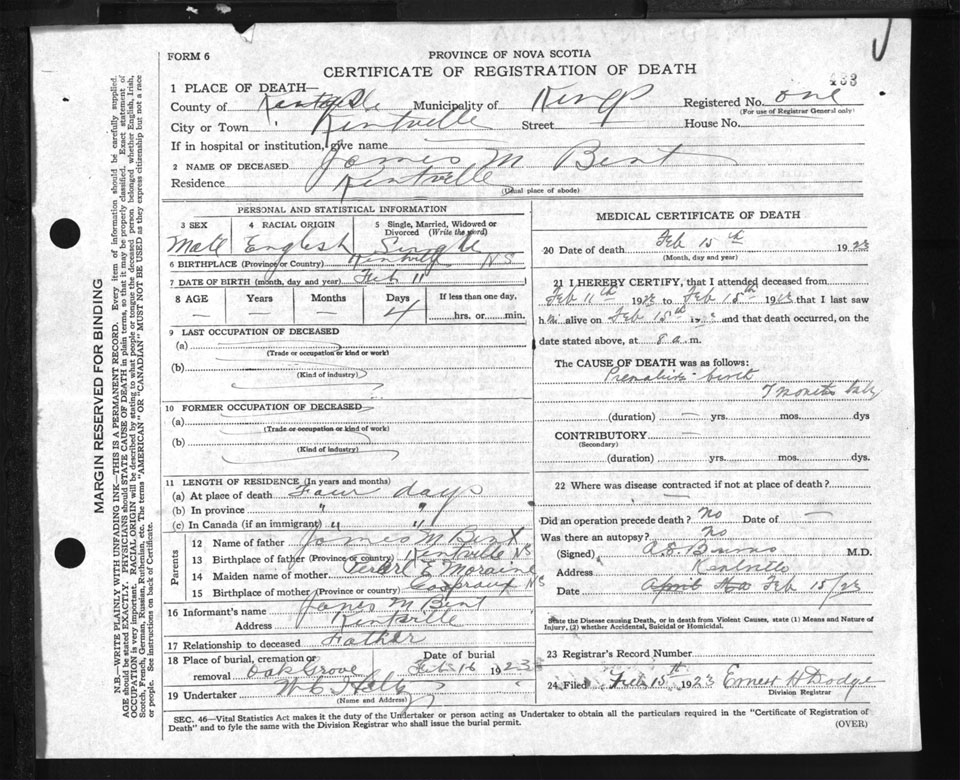 FORM 6
PROVINCE OF NOVA SCOTIA
CERTIFICATE OF REGISTRATION OF DEATH
433
1 PLACE OF DEATH—
County of Municipality of Kings Registered No. one
(For use of Registrar General only)
City or Town Kentville Street House No.
If in hospital or institution, give name
2 NAME OF DECEASED James M Bent
Residence Kentville
(Usual place of abode)
PERSONAL AND STATISTICAL INFORMATION
3 SEX 4 RACIAL ORIGIN 5 Single, Married, Widowed or Divorced (Write the word)
Male English Single
6 BIRTHPLACE (Province or Country) Kentville NS
7 DATE OF BIRTH (month, day and year) Feb 11
8 AGE Years Months Days If less than one day,
— — 4 hrs. or min.
9 LAST OCCUPATION OF DECEASED
(a)
(Trade or occupation or kind or work)
(b)
(Kind of industry)
10 FORMER OCCUPATION OF DECEASED
(a)
(Trade or occupation or kind or work)
(b)
(Kind of industry)
11 LENGTH OF RESIDENCE (In years and months)
(a) At place of death Four days
(b) In province " "
(c) In Canada (if an immigrant) " "
Parents
12 Name of father James M Bent
13 Birthplace of father (Province or country) Kentville NS
14 Maiden name of mother Pearl E Moraine
15 Birthplace of mother (Province or country) Gaspraux NS
16 Informant's name James M Bent
Address Kentville
17 Relationship to deceased Father
18 Place of burial, cremation or removal Oak Grove Date of burial Feb 16 1923
19 Undertaker
(Name and Address)
MEDICAL CERTIFICATE OF DEATH
20 Date of death Feb 15th 1923
(Month, day and year)
21 I HEREBY CERTIFY, that I attended deceased from
Feb 11th 1923 to Feb 15th 1923 that I last saw
him alive on Feb 15th and that death occurred, on
date stated above, at 8 a.m.
The CAUSE OF DEATH was as follows:
birth
7 months baby
(duration) — yrs. mos. dys
CONTRIBUTORY —
(Secondary)
(duration) yrs. mos. dys.
22 Where was disease contracted if not at place of death?
—
Did an operation precede death? No Date of —
Was there an autopsy? No
(Signed) A.S. Burns M.D.
Address Kentville
Date Feb 15/23
State the Disease causing Death, or in death from Violent Causes, state (1) Means and Nature of Injury, (2) whether Accidental, Suicidal or Homicidal.
23 Registrar's Record Number
24 Filed Feb 15th 1923 Ernest H Dodge
Division Registrar
SEC. 46—Vital Statistics Act makes it the duty of the Undertaker or person acting as Undertaker to obtain all the particulars required in the "Certificate of Registration of
Death" and to fyle the same with the Division Registrar who shall issue the burial permit.
(OVER)
MARGIN RESERVED FOR BINDING
N.B.—WRITE PLAINLY WITH UNFADING INK—THIS IS A PERMANENT RECORD. Every item of information should be carefully supplied.
AGE should be stated EXACTLY. PHYSICIANS should STATE CAUSE OF DEATH in plain terms, so that it may be properly classified. Exact statement of
OCCUPATION is very important. RACIAL ORIGIN will be described by stating to what people or tongue the deceased person belonged whether English, Irish,
Scotch, French, German, Russian, Ruthenian, etc. The terms "AMERICAN" or "CANADIAN" MUST NOT BE USED as they express citizenship but not a race
or people. See instructions on back of Certificate.